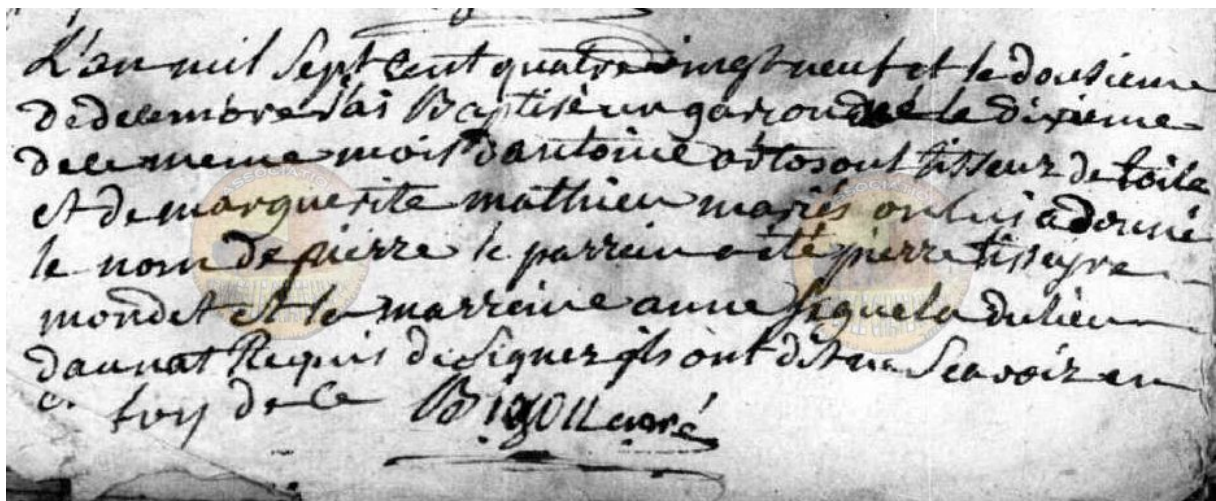 L'an mil sept cent quatre vingt neuf et le dousieme
de decembre j'ai Baptisé un garçon né le dixieme
de ce meme mois d'antoine ortosoul tisseur de toile
et de marguerite mathieu mariés on lui a donné
le nom de pierre le parrein a été pierre tisseyre
mondet et la marreine anne siguela du lieu
daunat Requis de signer ils ont dit ne scavoir en
foy de ce Bigou curé
ASSOCIATION
ASSOCIATION